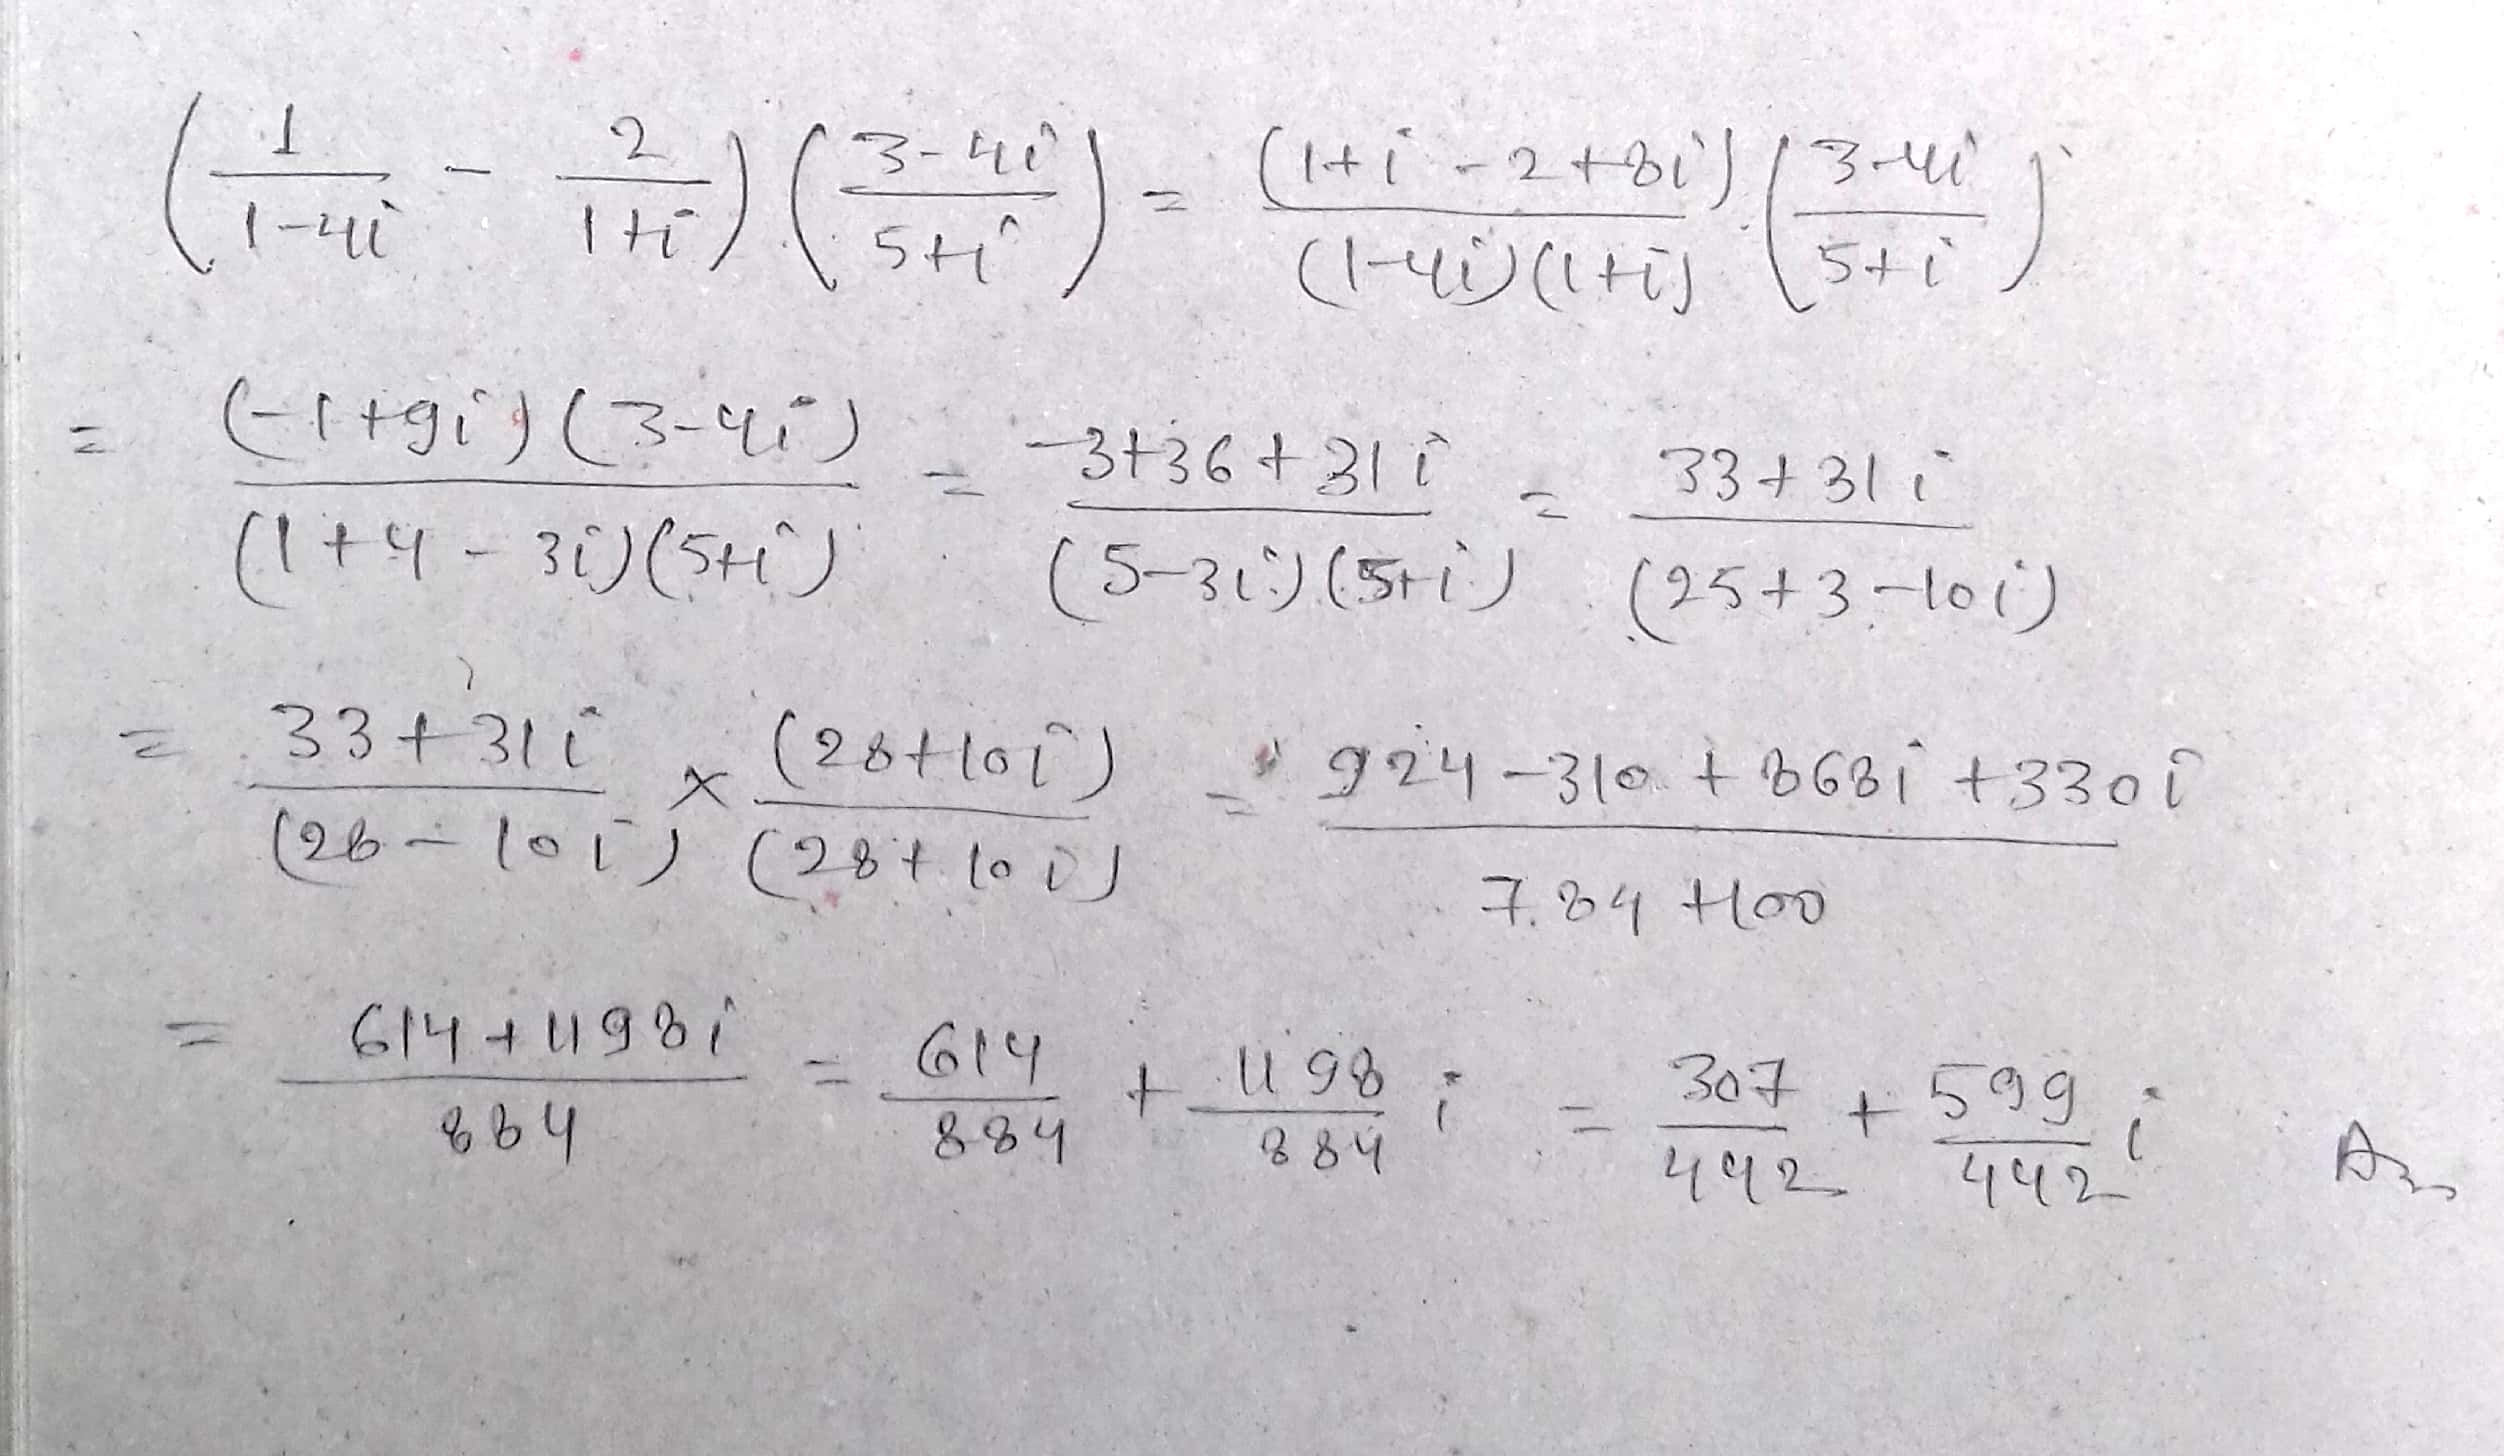 (1/(1-4i) - 2/(1+i)) ((3-4i)/(5+i)) = (1+i-2+8i)/((1-4i)(1+i)) ((3-4i)/(5+i))
= (-1+9i)(3-4i)/((1+4-3i)(5+i)) = (-3+36+31i)/((5-3i)(5+i)) = (33+31i)/(25+3-10i)
= (33+31i)/(28-10i) × (28+10i)/(28+10i) = (924-310+868i+330i)/(784+100)
= (614+1198i)/884 = 614/884 + 1198/884 i = 307/442 + 599/442 i Ans